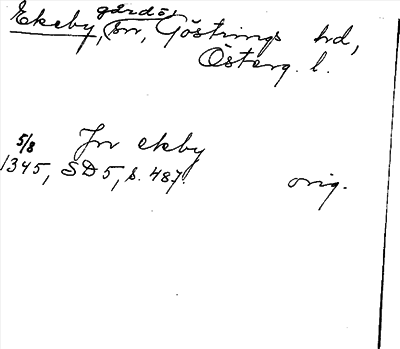 gårdö,
Ekeby, sn, Göstrings hd,
Österg. l.
5/8 Jn ekby
1345, SD5, s. 487. orig.